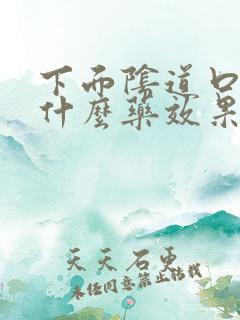 下而陰道口
什麼藥效果
天天石更
未经同意禁止转载